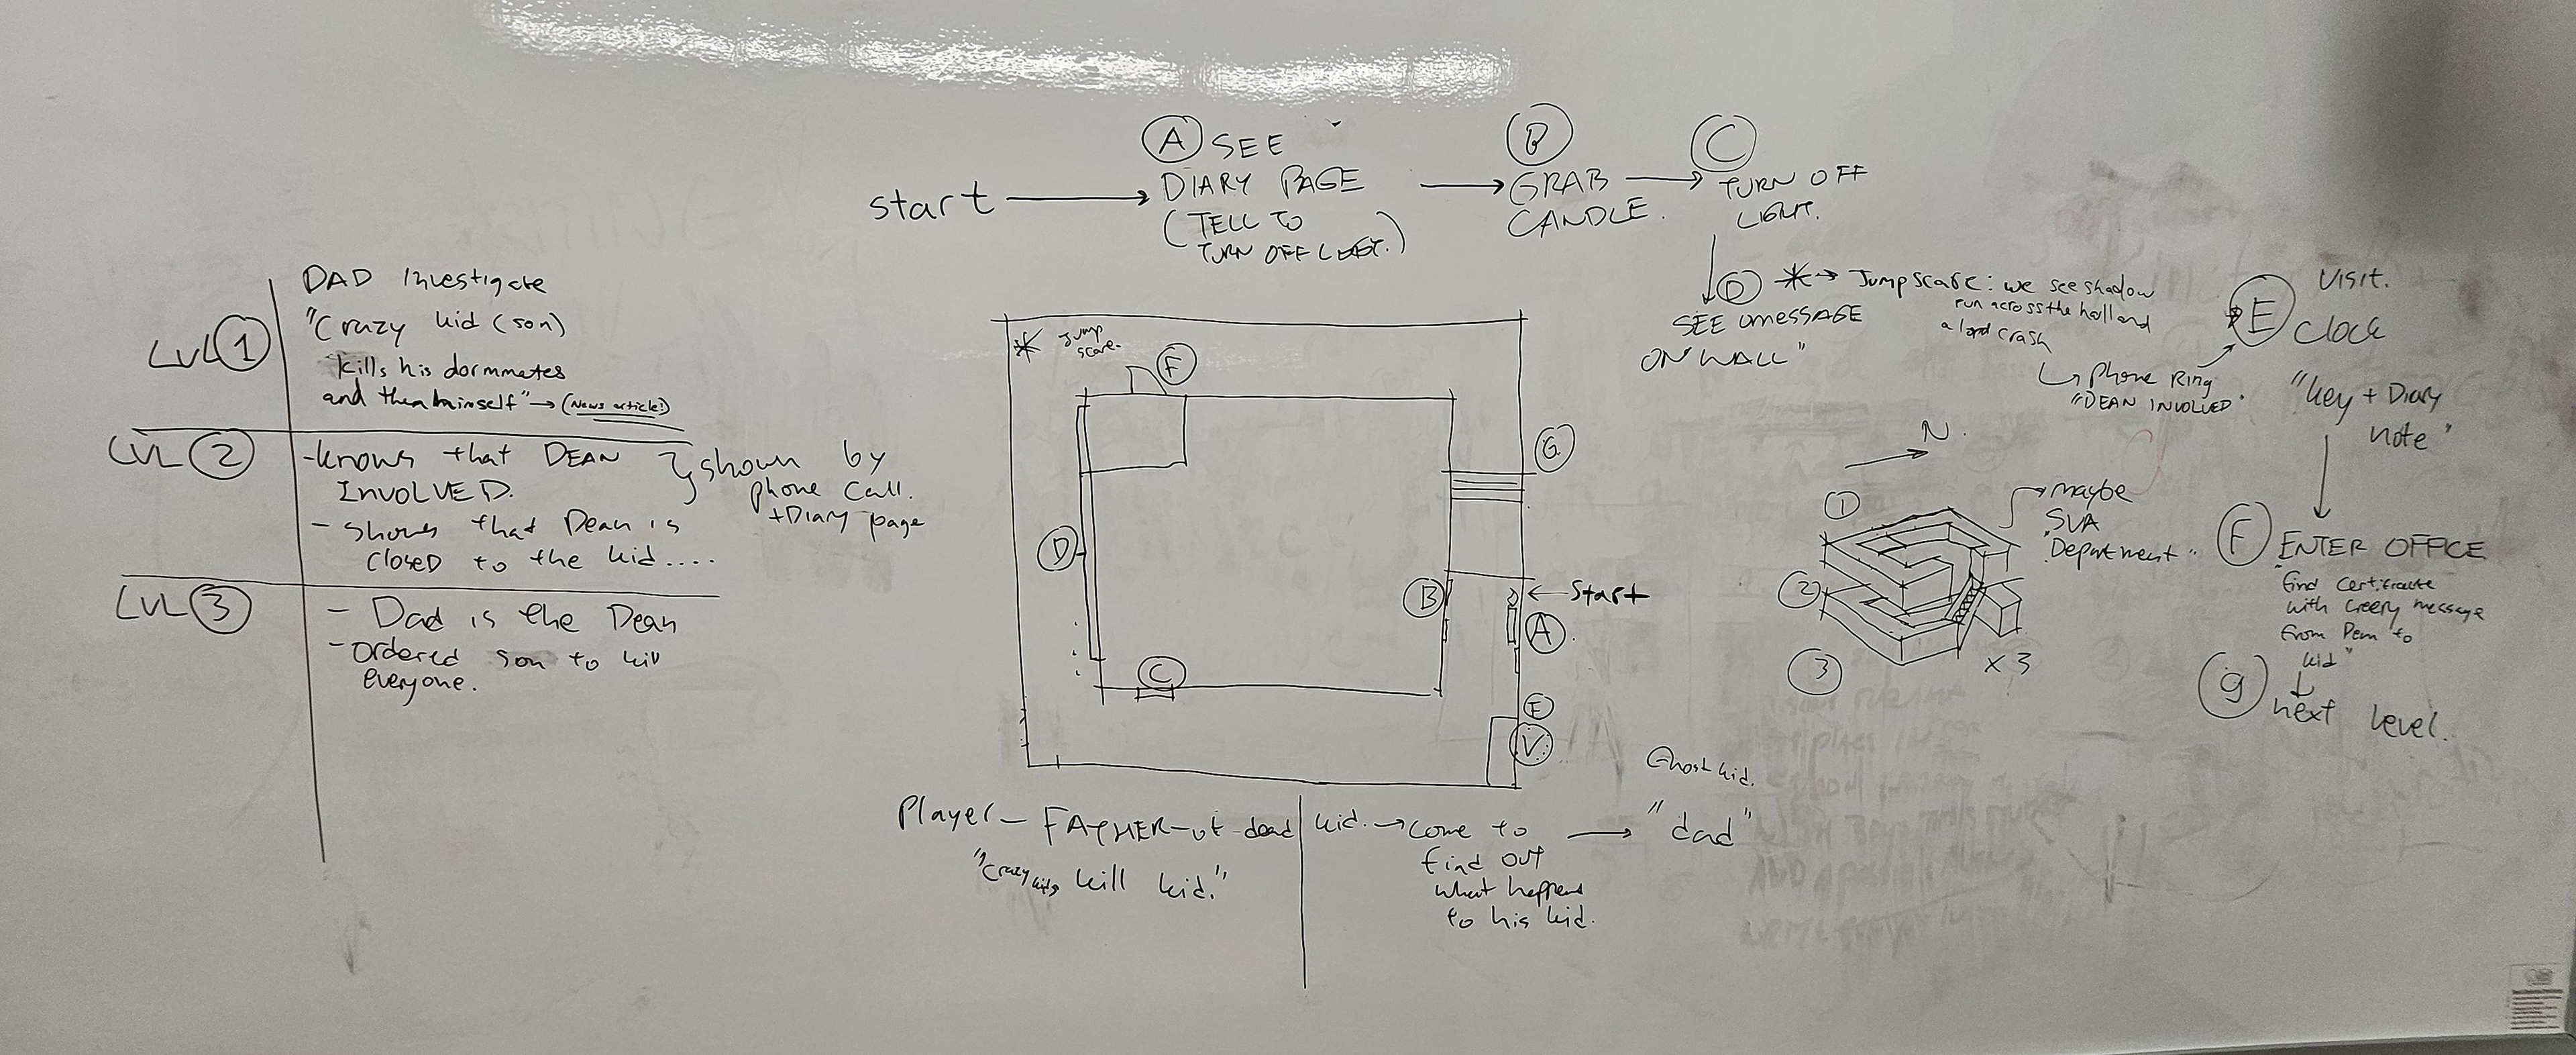 start
A SEE
DIARY PAGE
(TELL TO
TURN OFF LIGHT.)
B
GRAB
CANDLE.
C
TURN OFF
LIGHT.
D
SEE "MESSAGE
ON WALL"
* Jumpscare: we see shadow
run across the hall and
a loud crash
Phone Ring
"DEAN INVOLVED"
E
visit.
Clock
"key + Diary
note"
F ENTER OFFICE
"find certificate
with creepy message
from Dean to
kid"
g next level.
LVL 1
DAD investigate
"Crazy kid (son)
kills his dormmates
and then himself" → (News article!)
LVL 2
-knows that DEAN
INVOLVED.
- shows that Dean is
closed to the kid....
shown by
phone call.
+Diary page
LVL 3
- Dad is the Dean
-Ordered son to kill
everyone.
* Jump
scare.
F
G
D
B
Start
A
C
E
V
N.
1
2
3
x 3
maybe
SVA
"Department"
Player - FATHER-of-dead kid. → come to
find out
what happens
to his kid.
"Crazy kills kill kid."
Ghost kid.
"dad"